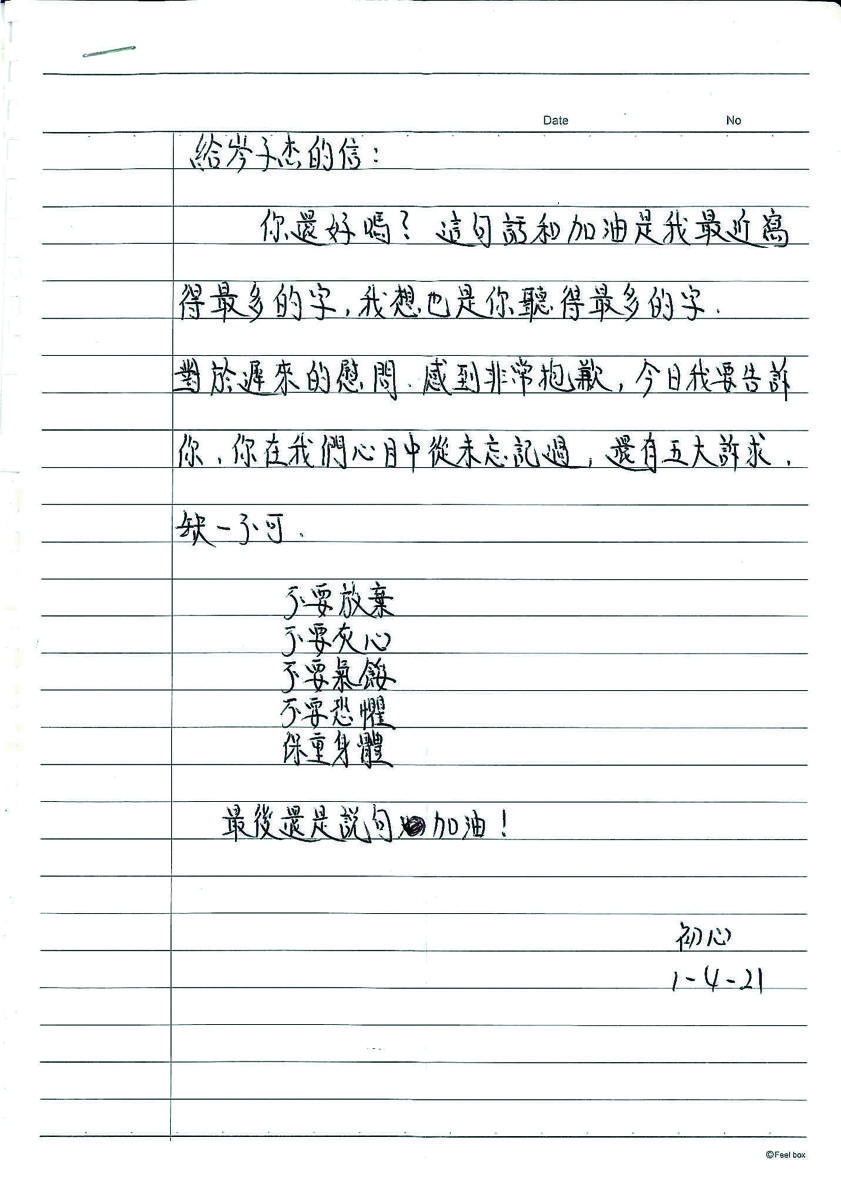 Date No
給岑子杰的信：
你還好嗎？這句話和加油是我最近寫
得最多的字，我想也是你聽得最多的字.
對於遲來的慰問.感到非常抱歉，今日我要告訴
你、你在我們心目中從未忘記過，還有五大訴求.
缺一不可.
不要放棄
不要灰心
不要氣餒
不要恐懼
保重身體
最後還是說句 加油！
初心
1-4-21
©Feel box